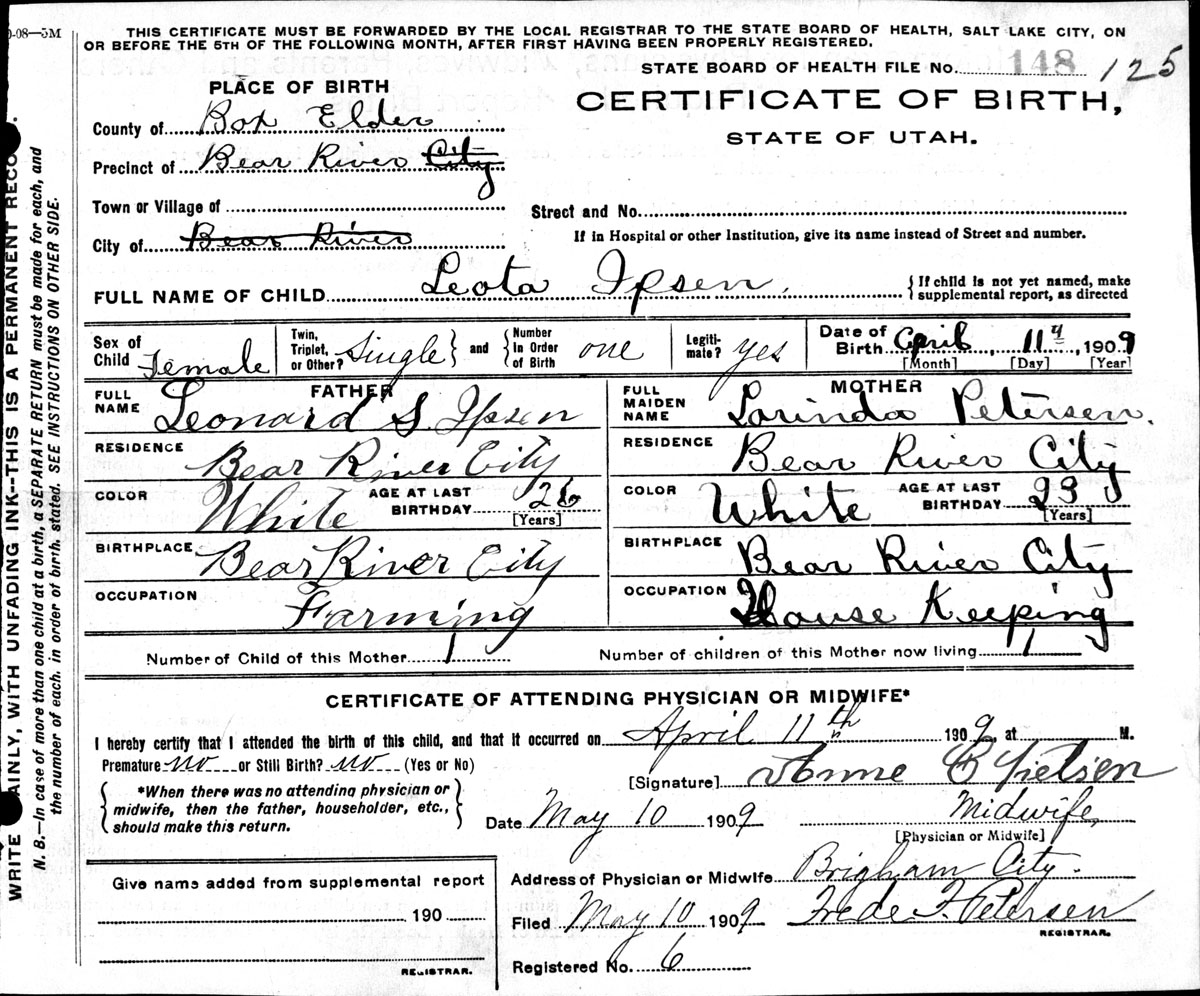 0-08—5M
THIS CERTIFICATE MUST BE FORWARDED BY THE LOCAL REGISTRAR TO THE STATE BOARD OF HEALTH, SALT LAKE CITY, ON
OR BEFORE THE 5TH OF THE FOLLOWING MONTH, AFTER FIRST HAVING BEEN PROPERLY REGISTERED.
STATE BOARD OF HEALTH FILE No. 148 125
PLACE OF BIRTH
CERTIFICATE OF BIRTH,
STATE OF UTAH.
County of Box Elder
Precinct of Bear River City
Town or Village of
Street and No.
City of Bear River
If in Hospital or other Institution, give its name instead of Street and number.
FULL NAME OF CHILD Leota Ipsen. { If child is not yet named, make
supplemental report, as directed
Sex of Child Female
Twin, Triplet, or Other? Single } and { Number In Order of Birth one
Legiti-mate? yes
Date of Birth April, 11th, 1909
[Month] [Day] [Year]
FATHER
FULL NAME Leonard S. Ipsen
RESIDENCE Bear River City
COLOR White AGE AT LAST BIRTHDAY 26
[Years]
BIRTHPLACE Bear River City
OCCUPATION Farming
MOTHER
FULL MAIDEN NAME Lorinda Petersen.
RESIDENCE Bear River City
COLOR White AGE AT LAST BIRTHDAY 23
[Years]
BIRTHPLACE Bear River City
OCCUPATION House Keeping
Number of Child of this Mother 1 Number of children of this Mother now living 1
CERTIFICATE OF ATTENDING PHYSICIAN OR MIDWIFE*
I hereby certify that I attended the birth of this child, and that it occurred on April 11th 1909, at M.
Premature no or Still Birth? no (Yes or No)
[Signature] Anne B
{ *When there was no attending physician or
midwife, then the father, householder, etc.,
should make this return. }
Date May 10 1909 Midwife,
[Physician or Midwife]
Give name added from supplemental report
190
REGISTRAR.
Address of Physician or Midwife Brigham City.
Filed May 10 1909 Frede F. Petersen
REGISTRAR.
Registered No. 6
WRITE AINLY, WITH UNFADING INK--THIS IS A PERMANENT RECO .
N. B.—In case of more than one child at a birth, a SEPARATE RETURN must be made for each, and
the number of each, in order of birth, stated. SEE INSTRUCTIONS ON OTHER SIDE.